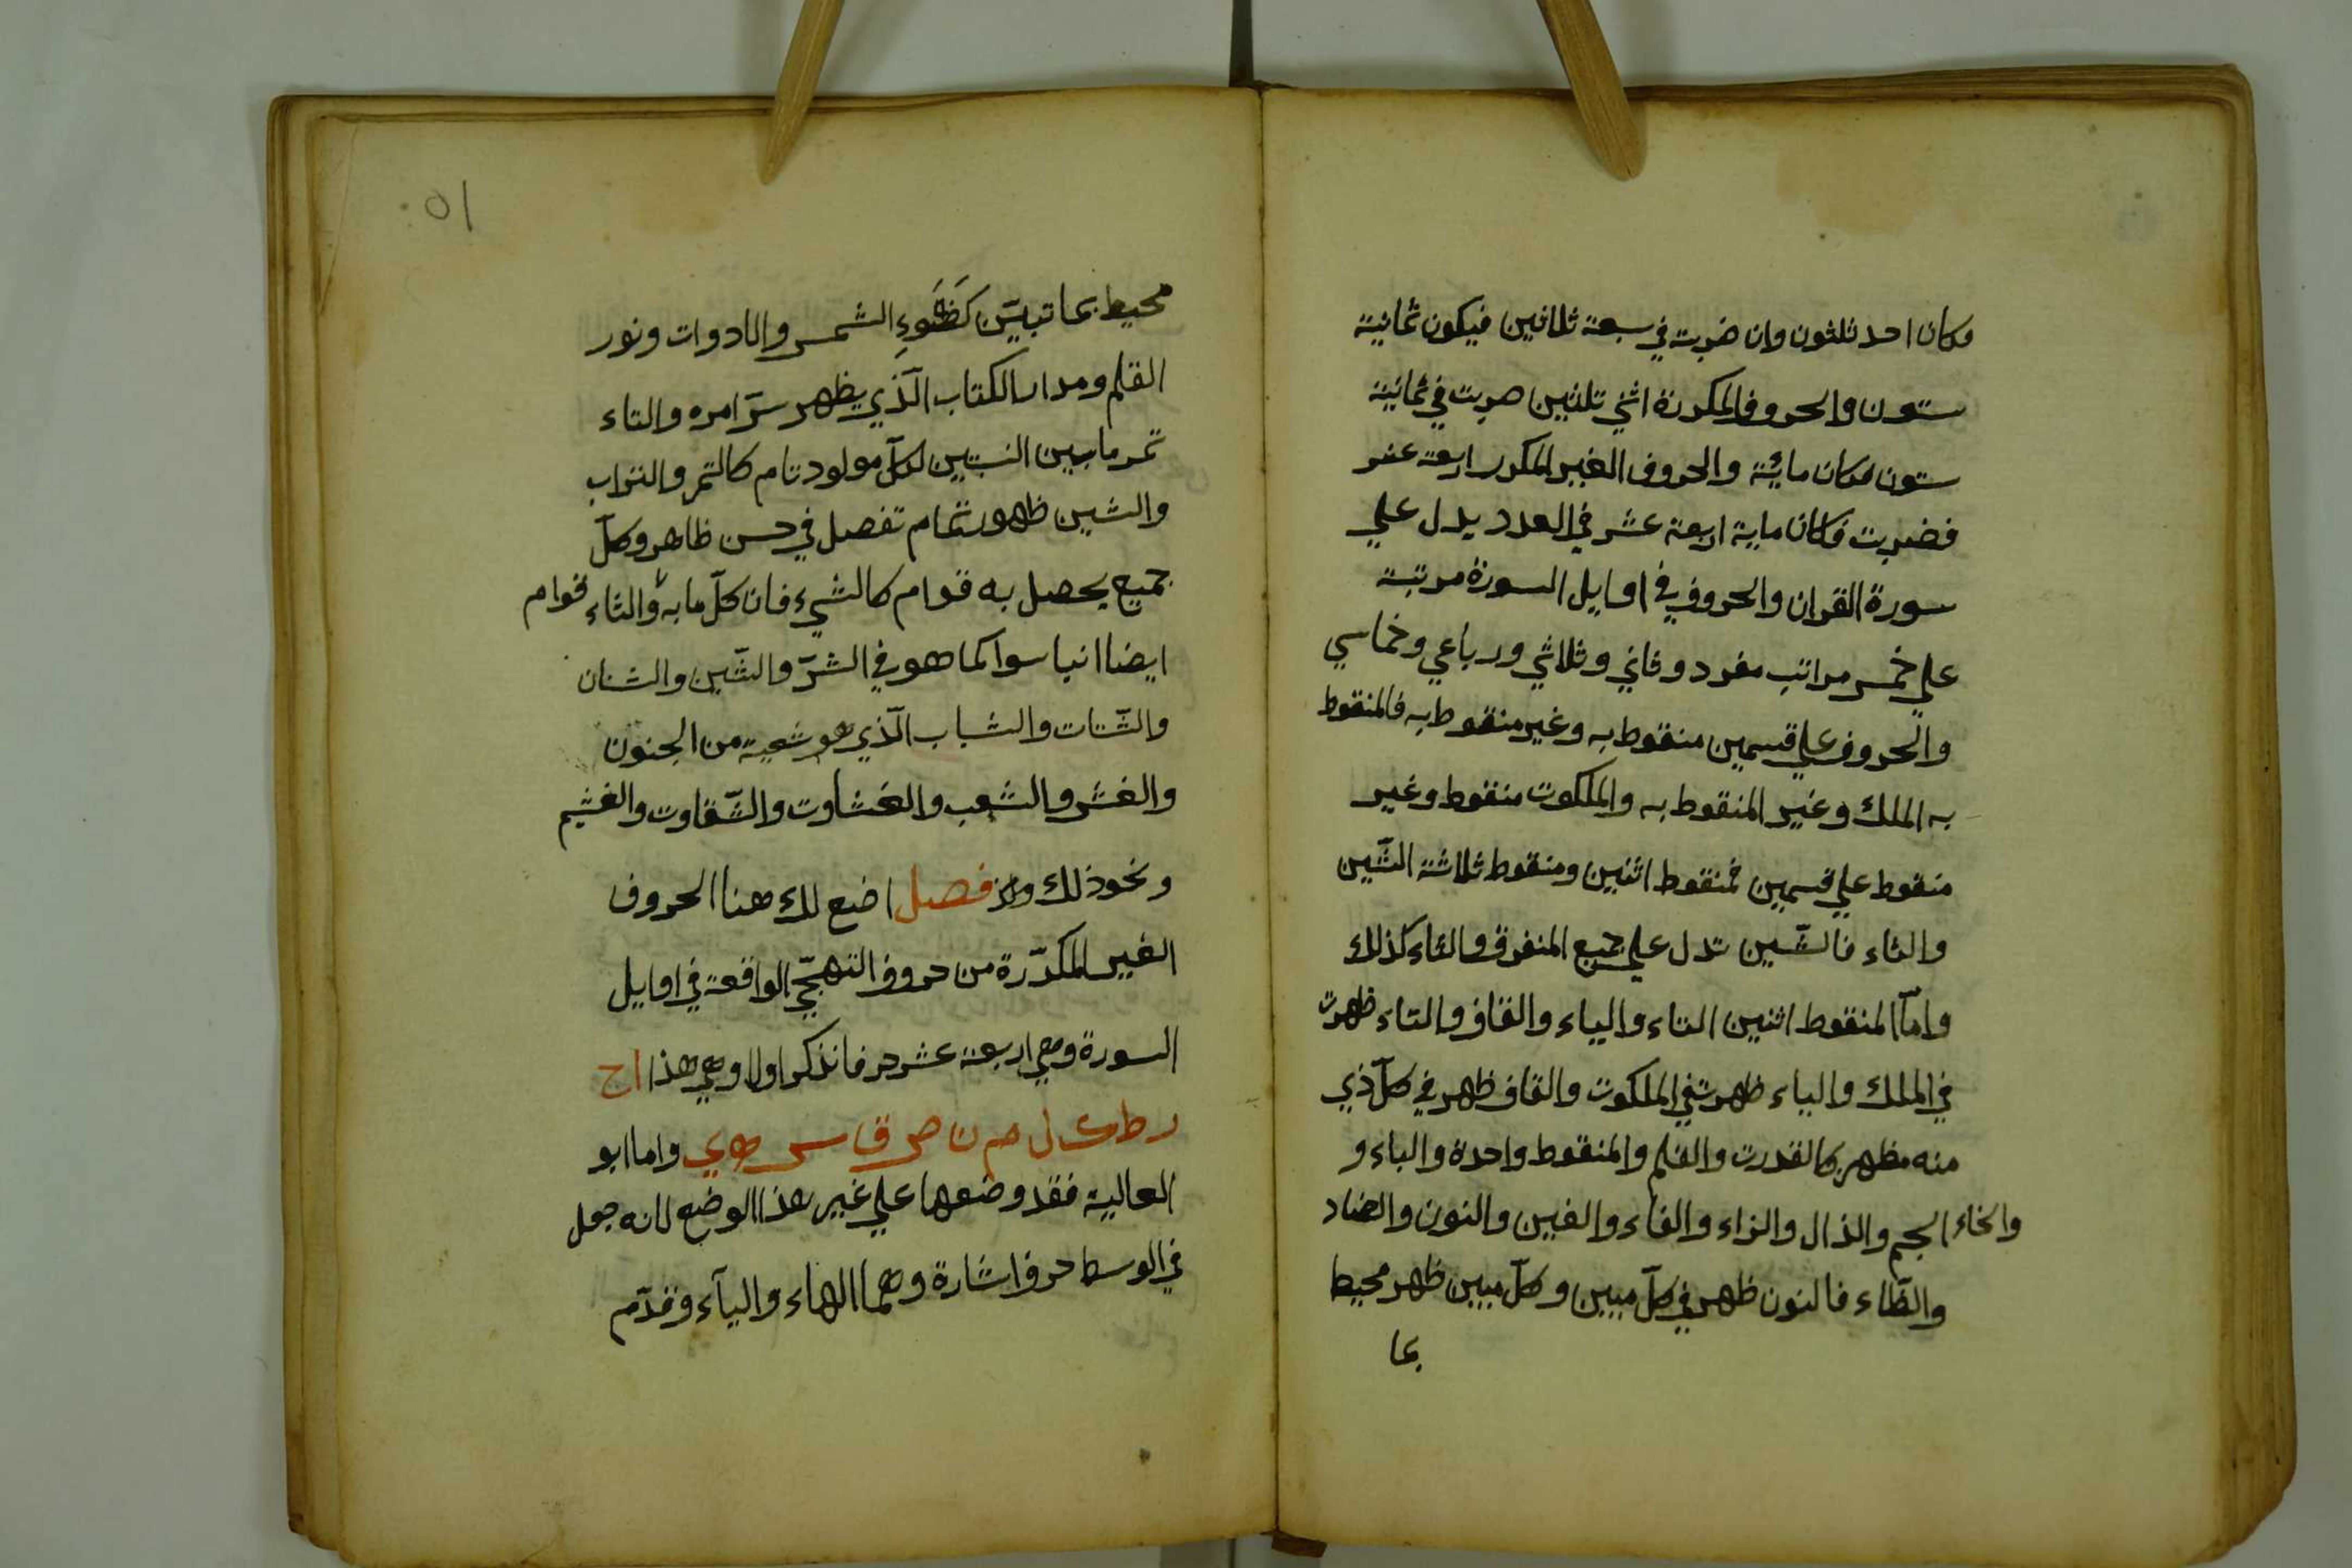 وكان احد ثلثون وان ضربت في سبعة ثلاثين فيكون ثمانية
ستون والحروف المكررة اثني ثلثين ضربت في ثمانية
ستون فكان مائة والحروف الغير المكرر اربعة عشر
فضربت فكان ماية اربعة عشر في العدد يدل علي
سورة القران والحروف في اوايل السورة مرتبة
علي خمس مراتب مفرد وثاني وثلاثي ورباعي وخماسي
والحروف علي قسمين منقوط به وغير منقوط به فالمنقوط
به الملك وغير المنقوط به والملكوت منقوط وغير
منقوط علي قسمين فمنقوط اثنين ومنقوط ثلاثة الشّين
والثاء فالشّين تدل علي جميع المتفرق والثاء كذلك
وامّا المنقوط اثنين التاء والياء والقاف والتاء ظهرت
في الملك والياء ظهرت في الملكوت والقاف ظهر في كلّ ذي
منه مظهر كالقدرت والقلم والمنقوط واحدة والباء و
والخاء الجيم والذال والزاء والفاء والغين والنون والضاد
والظّاء فالنون ظهر في كلّ مبين وكلّ مبين ظهر محيط
بما
١٥
محيط بما تبيّن كضَوءِ الشمس والادوات ونور
القلم ومداد الكتاب الّذي يظهر سرّ امره والتاء
تمر مابين النبتين لكلّ مولود تام كالتمر والتراب
والشين ظهور تمام تفصل في حسن ظاهر وكلّ
جميع يحصل به قوام كالشيء فان كلّ ما به والثاء قوام
ايضا انيا سوا كما هو في الشرّ والشّين والشنان
والشّتات والشباب الّذي هو شعبة من الجنون
والغش والشعب والغشاوت والشّقاوت والغشيم
ونحو ذلك فصل اضع لك هنا الحروف
الغير المكرّرة من حروف التهجّي الواقعة في اوايل
السورة وهي اربعة عشر حرفا نذكر اولا وهي هذا ا ح
ر ط ك ل م ن ص ق س ه ي واما ابو
العالية فقد وضعها علي غير هذا الوضع لانه جعل
في الوسط حرفا اشارة وهما الهاء واليآء وقدّم